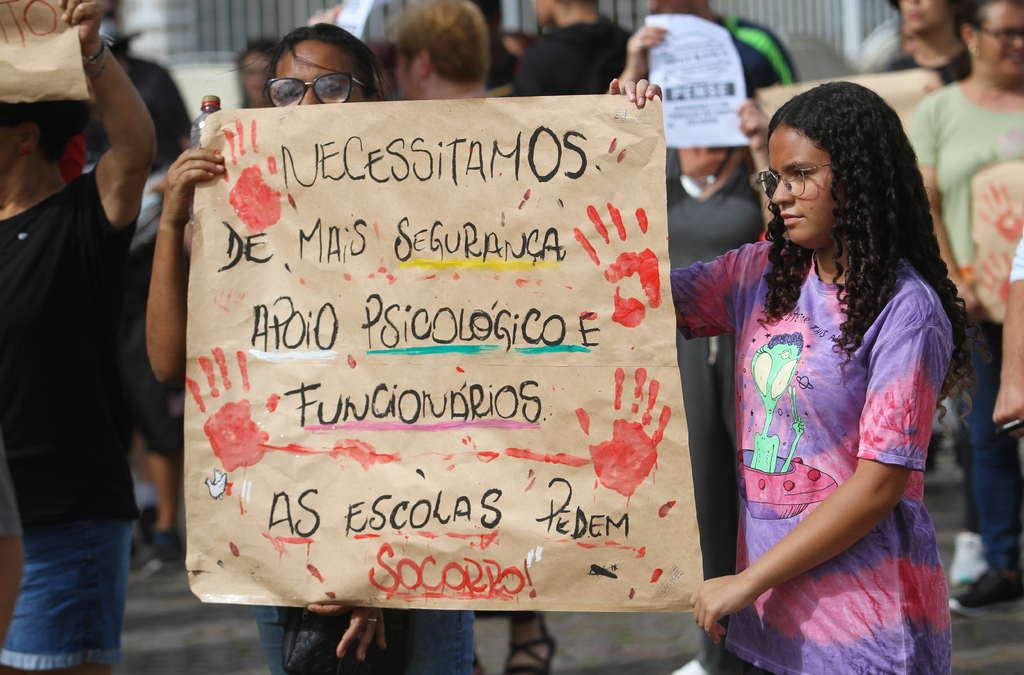 NECESSITAMOS
DE MAIS SEGURANÇA
APOIO PSICOLÓGICO E
FUNCIONÁRIOS.
AS ESCOLAS PEDEM
SOCORRO!
PENSE